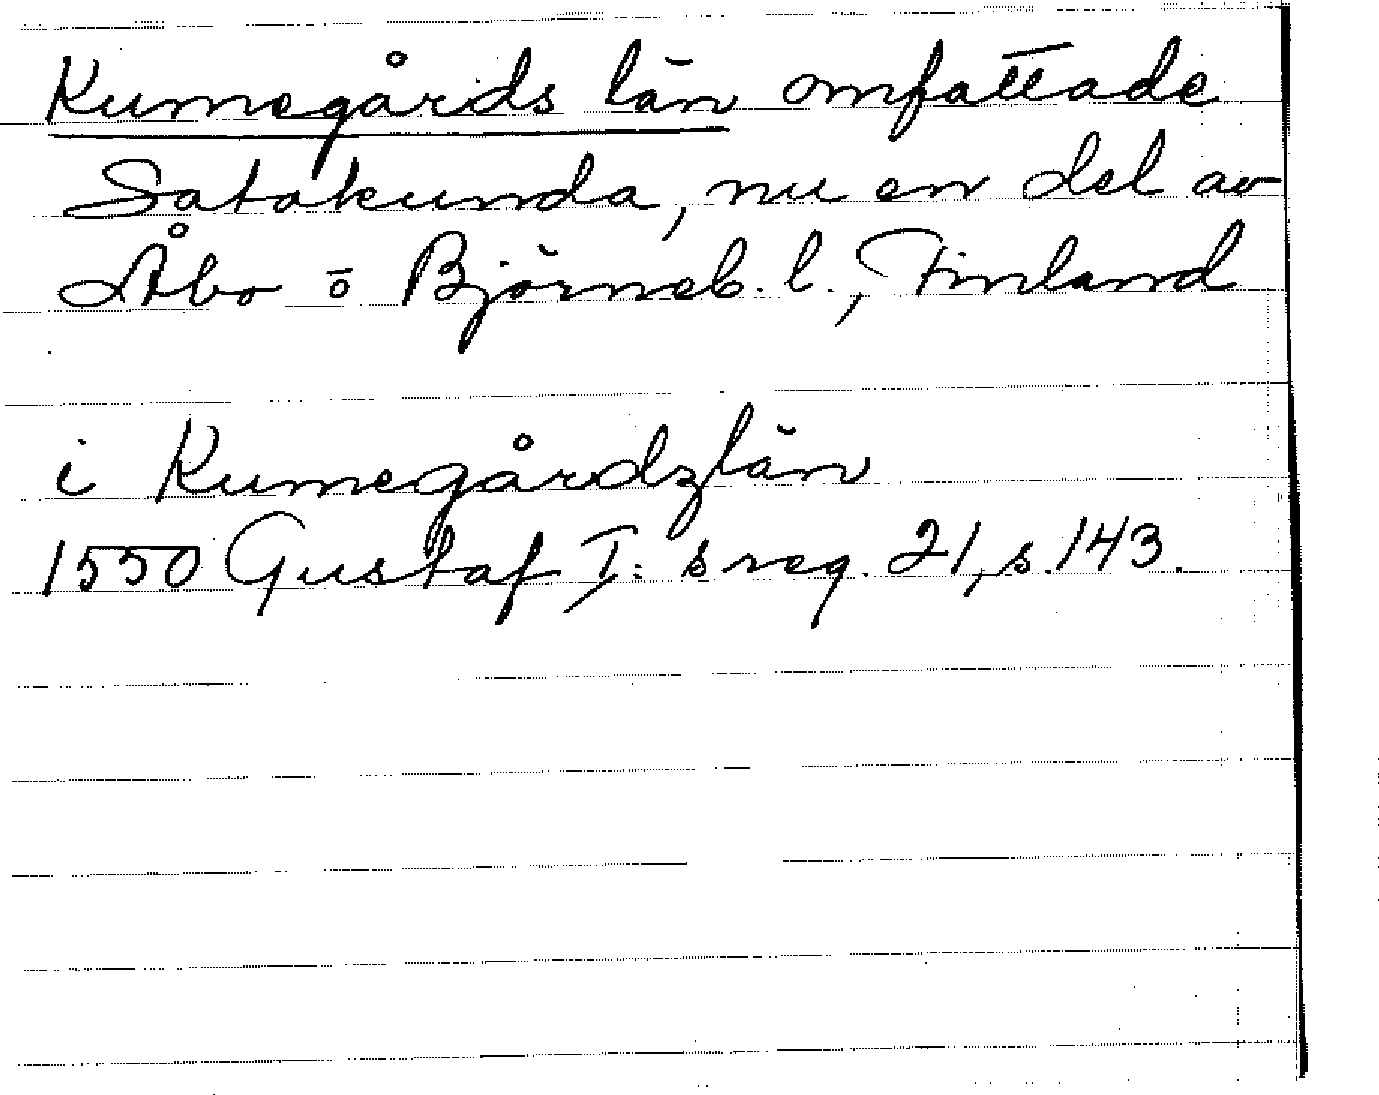 Kumegårds län omfattade
Satakunda, nu en del av
Åbo o Björneb. l., Finland
i Kumegårdzlän
1550 Gustaf I:s reg. 21, s. 143.